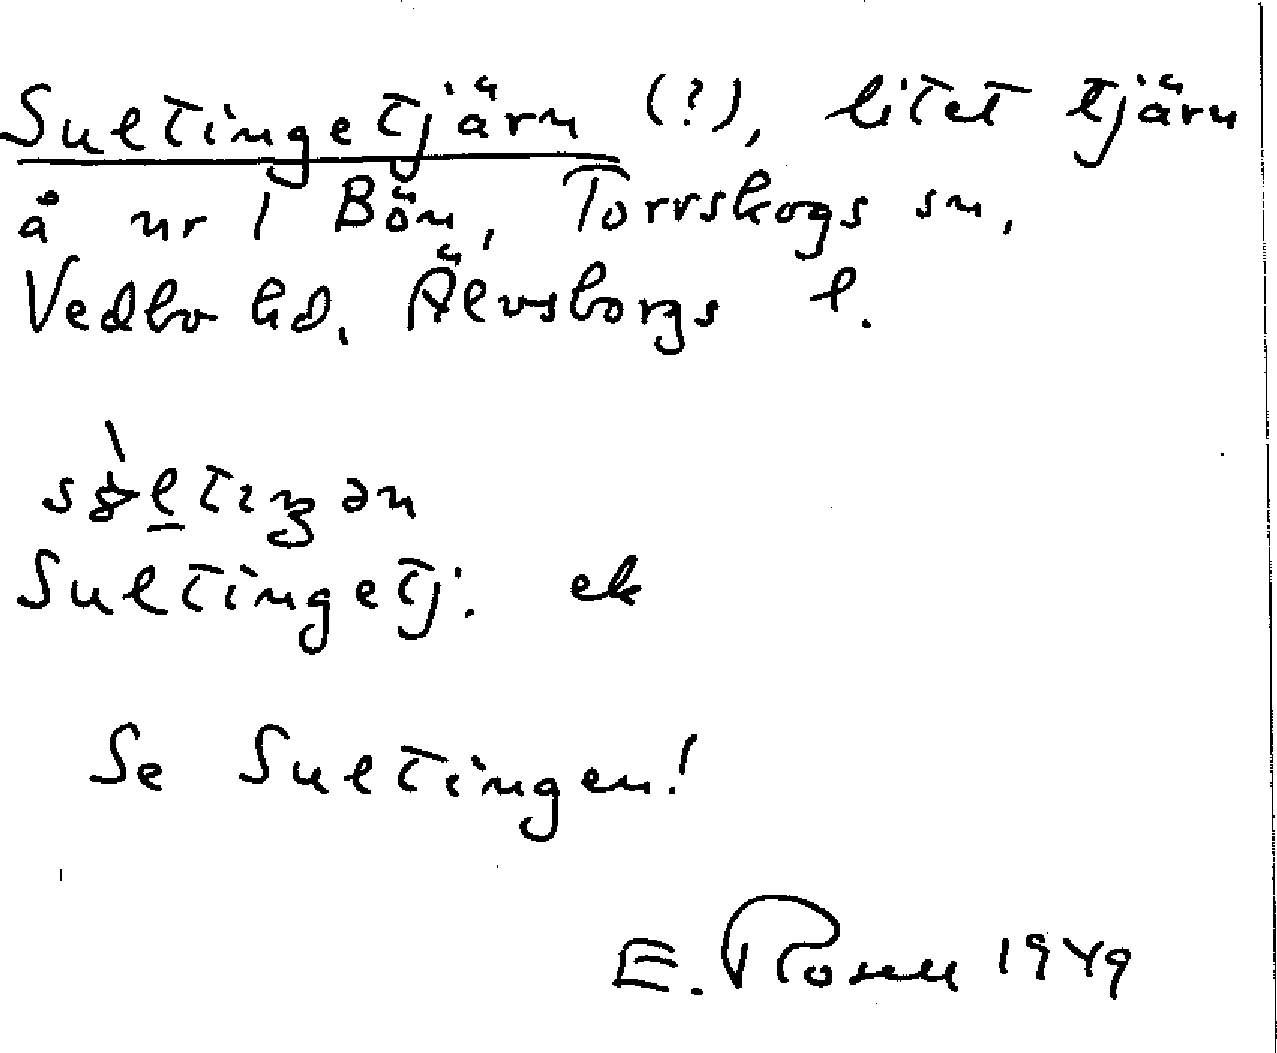 Sultingetjärn (?), litet tjärn
å nr 1 Bön, Torrskogs sn,
Vedbo hd, Älvsborgs l.
Sultingetj. ek
Se Sultingen!
E. Rosell 1949